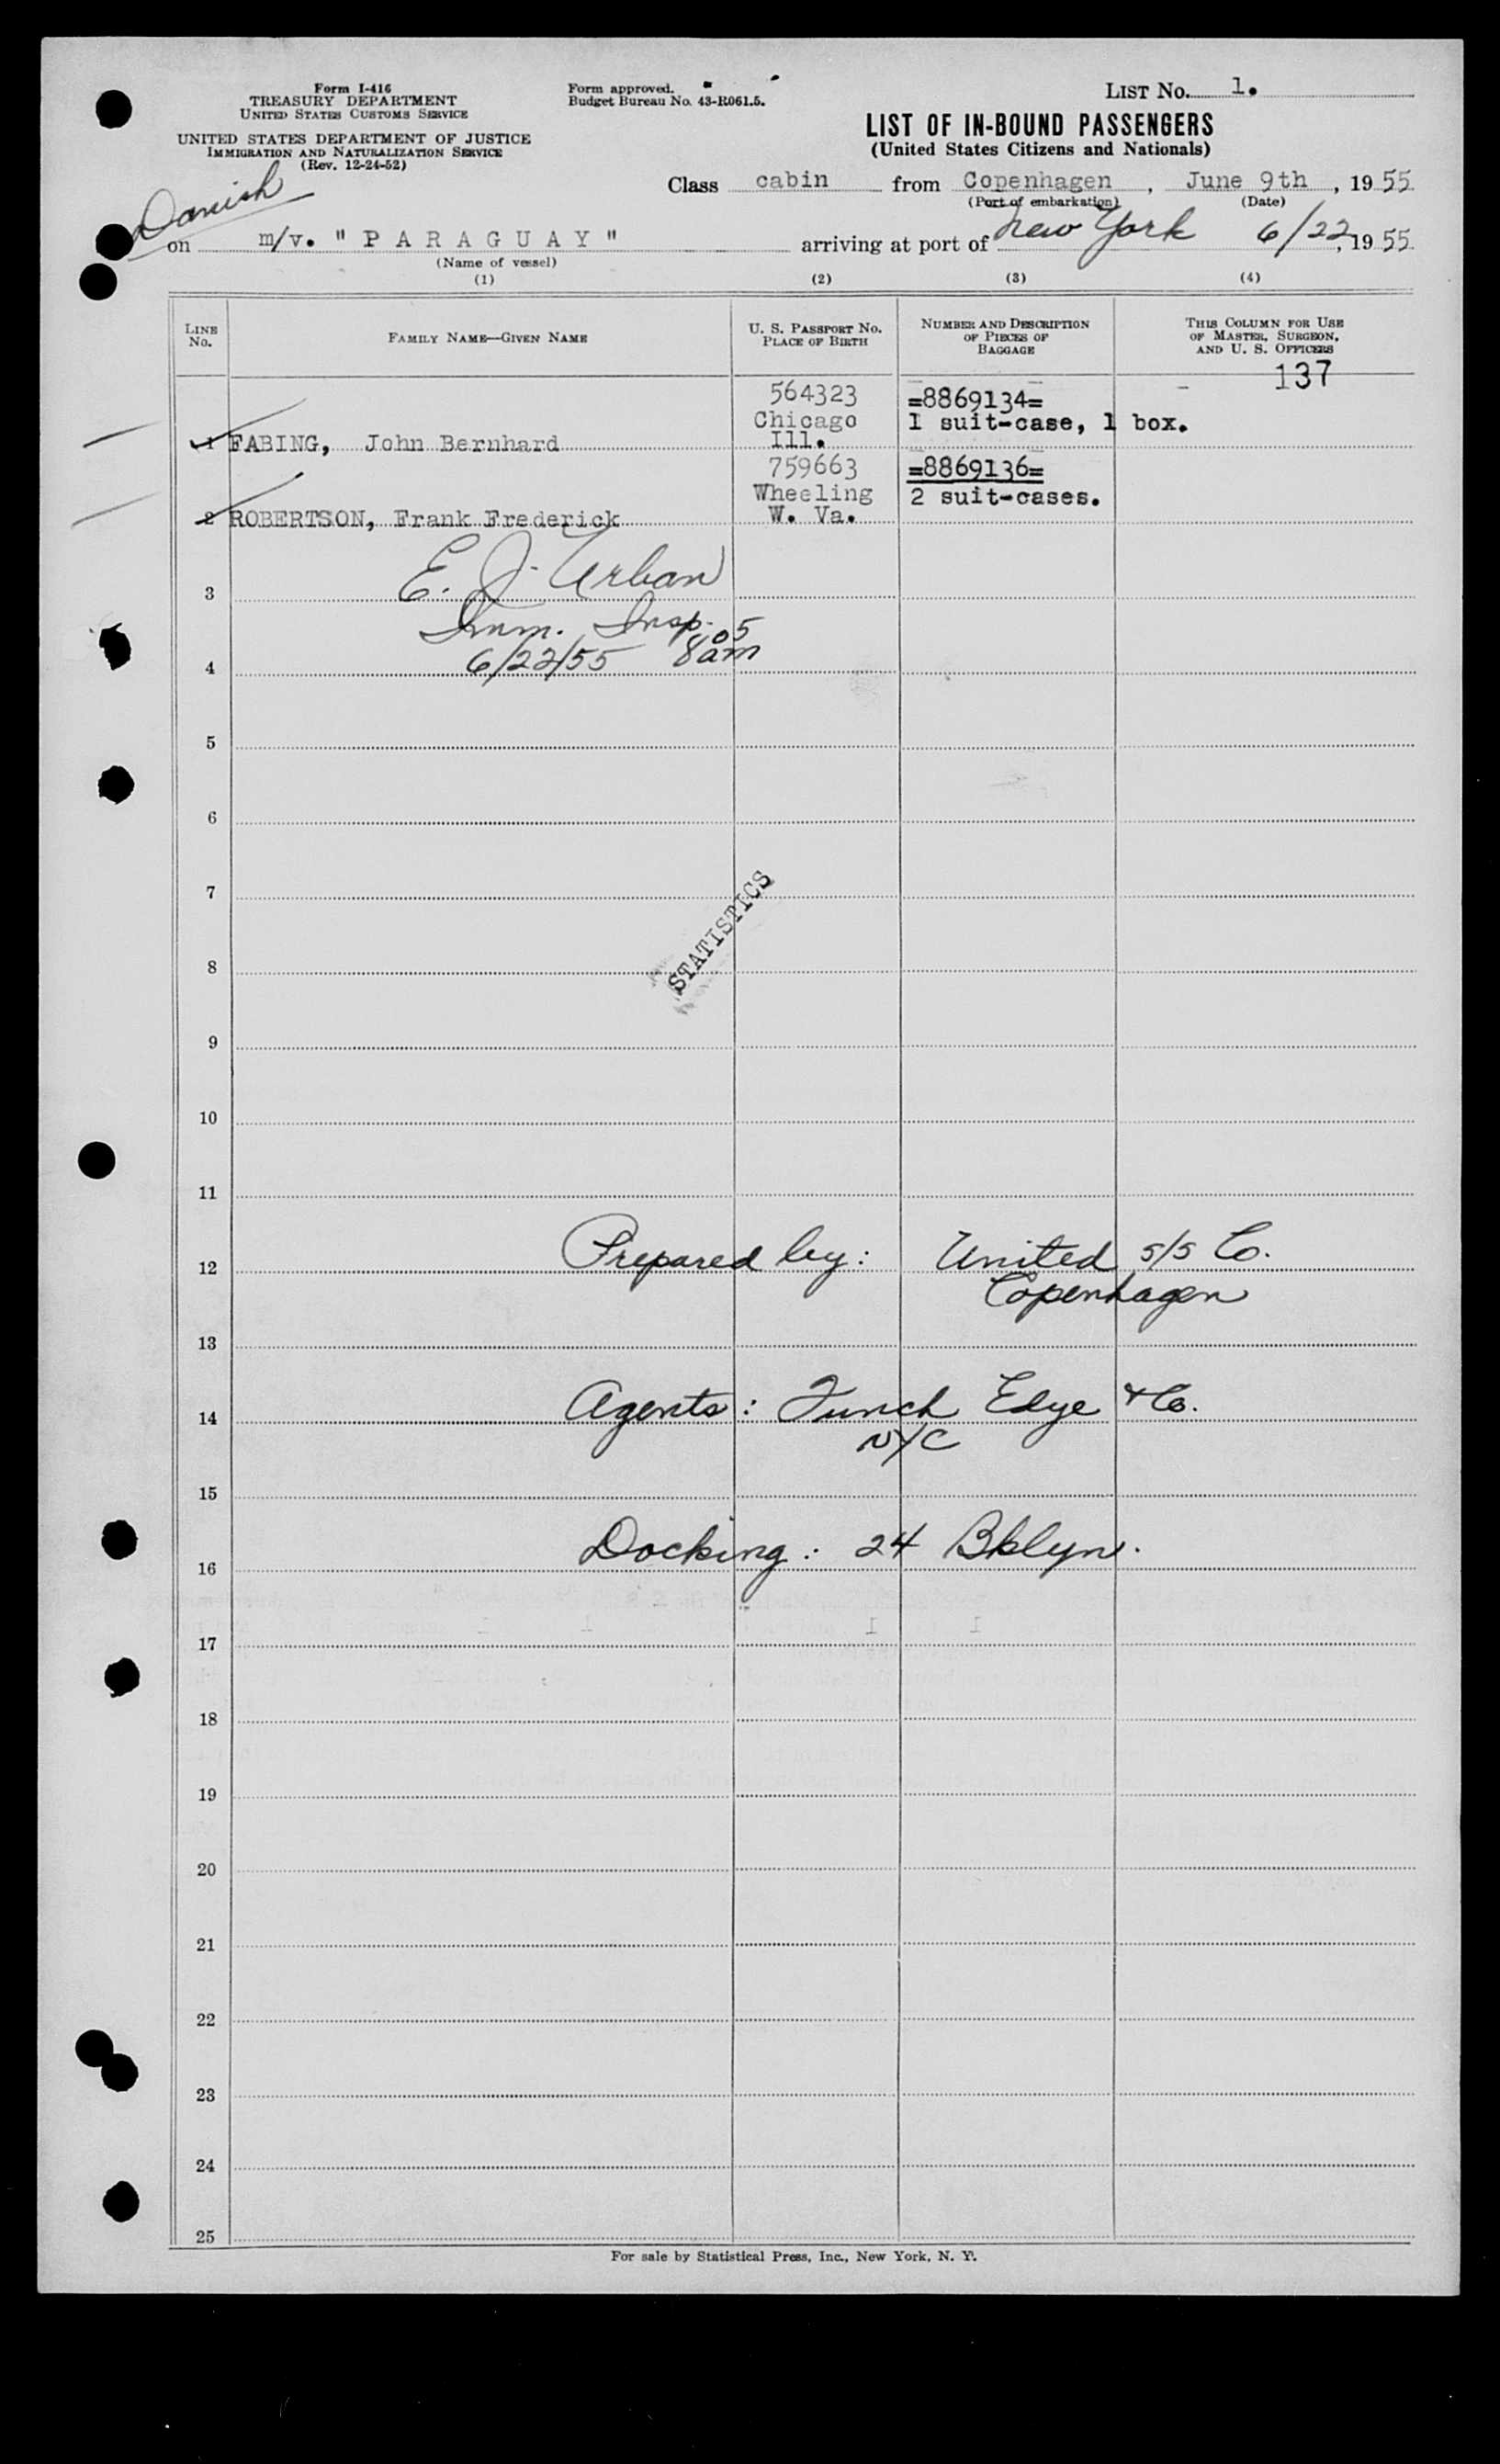 Form I-416
TREASURY DEPARTMENT
UNITED STATES CUSTOMS SERVICE
UNITED STATES DEPARTMENT OF JUSTICE
IMMIGRATION AND NATURALIZATION SERVICE
(Rev. 12-24-52)
Form approved.
Budget Bureau No. 43-R061.5.
LIST No. 1.
LIST OF IN-BOUND PASSENGERS
(United States Citizens and Nationals)
Danish
Class cabin from Copenhagen, June 9th, 1955
(Port of embarkation) (Date)
on m/v. "PARAGUAY" arriving at port of New York 6/22, 1955
(Name of vessel)
(1) (2) (3) (4)
LINE No.
FAMILY NAME—GIVEN NAME
U. S. PASSPORT No.
PLACE OF BIRTH
NUMBER AND DESCRIPTION
OF PIECES OF
BAGGAGE
THIS COLUMN FOR USE
OF MASTER, SURGEON,
AND U. S. OFFICERS
137
564323 =8869134=
Chicago 1 suit-case, 1 box.
1 FABING, John Bernhard Ill.
759663 =8869136=
Wheeling 2 suit-cases.
2 ROBERTSON, Frank Frederick W. Va.
E. J. Urban
3
Imm. Insp.
4 6/22/55 8 05 am
5
6
7
STATISTICS
8
9
10
11
12 Prepared by: United S/S Co.
Copenhagen
13
14 Agents: Funch Edye & Co.
NYC
15
16 Docking: 24 Bklyn.
17
18
19
20
21
22
23
24
25
For sale by Statistical Press, Inc., New York, N. Y.